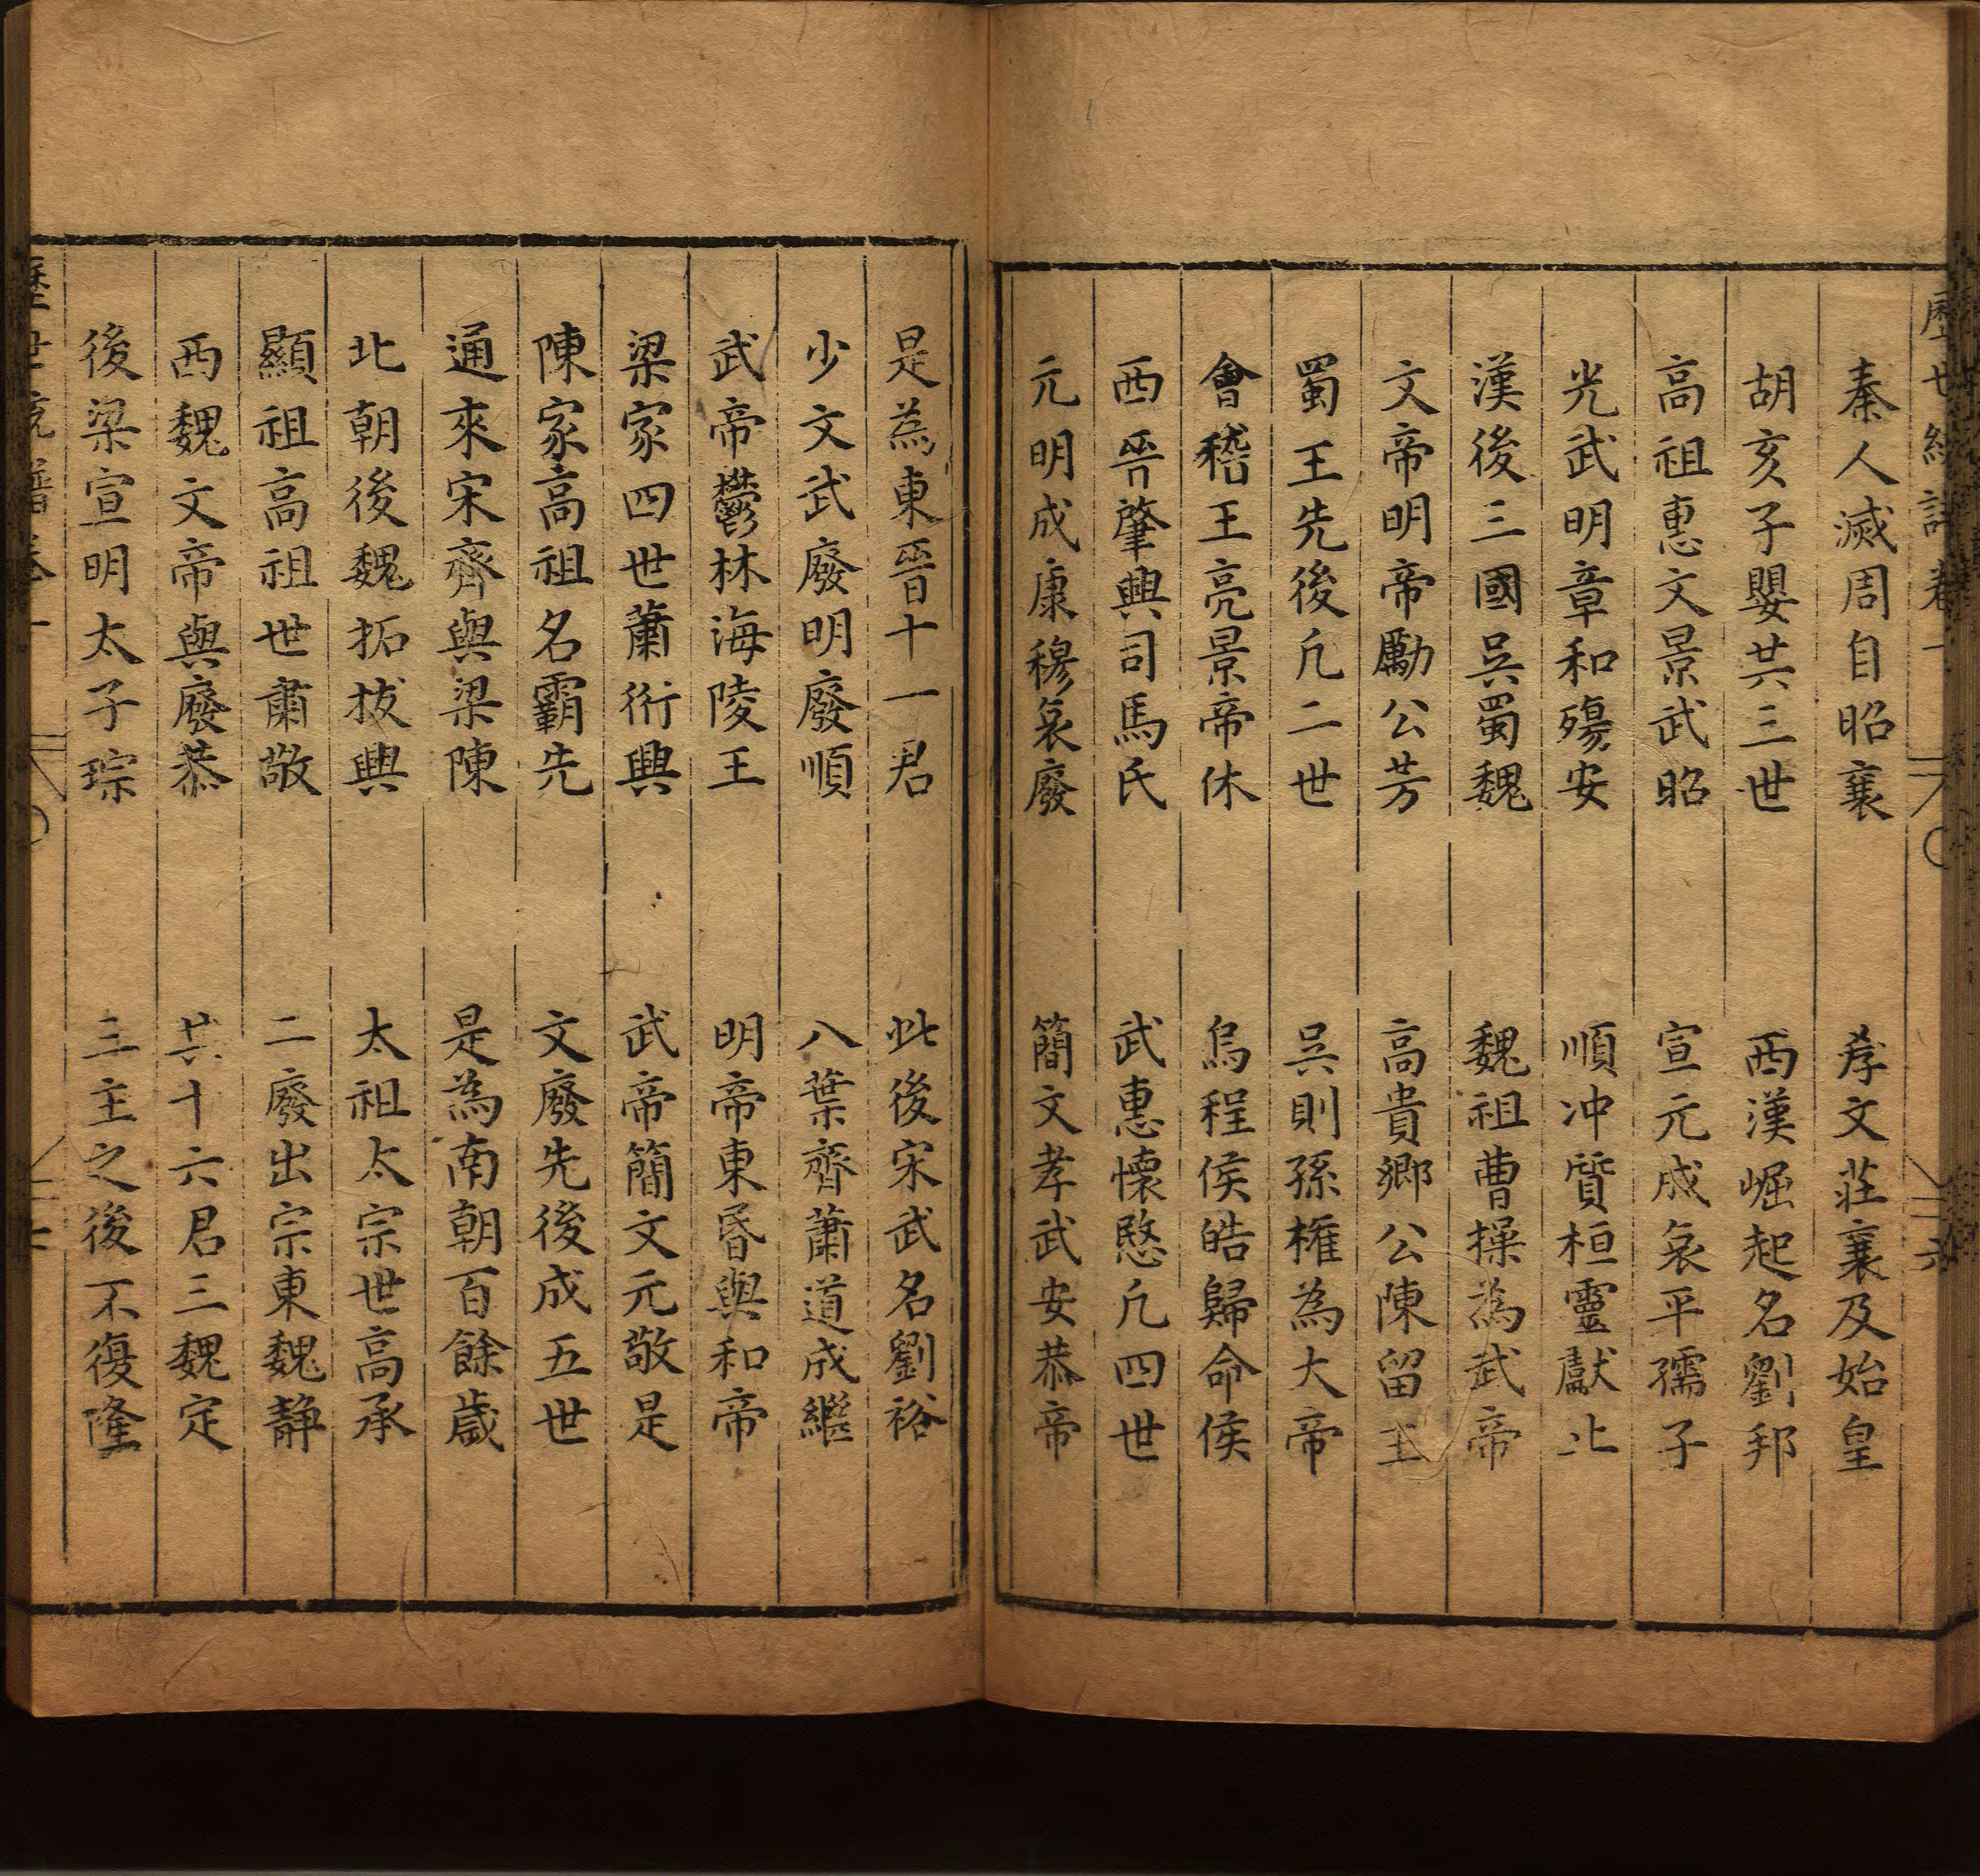 秦人滅周自昭襄　孝文莊襄及始皇
胡亥子嬰共三世　西漢崛起名劉邦
高祖惠文景武昭　宣元成哀平孺子
光武明章和殤安　順冲質桓靈獻止
漢後三國吳蜀魏　魏祖曹操為武帝
文帝明帝勵公芳　高貴鄉公陳留王
蜀王先後凢二世　吳則孫權為大帝
會稽王亮景帝休　烏程侯皓歸命侯
西晉肇興司馬氏　武惠懷愍凢四世
元明成康穆哀廢　簡文孝武安恭帝
是為東晉十一君　此後宋武名劉裕
少文武廢明廢順　八葉齊蕭道成繼
武帝鬱林海陵王　明帝東昏與和帝
梁家四世蕭衍興　武帝簡文元敬是
陳家高祖名霸先　文廢先後成五世
通來宋齊與梁陳　是為南朝百餘歲
北朝後魏拓拔興　太祖太宗世高承
顯祖高祖世肅敬　二廢出宗東魏靜
西魏文帝與廢恭　共十六君三魏定
後梁宣明太子琮　三主之後不復隆